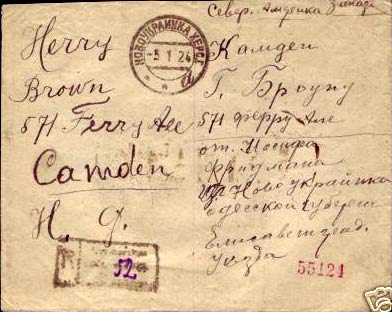 Север. Америка
Herry
Brown
571 Ferry Ave
Camden
N. J.
НОВОУКРАИНКА ХЕРС.
-5 1 24
а
Камден
Г. Броуну
571 Ферру Аве
от Иосифа
Фридмана
Новоукраинка
Одесской губерн
Елисаветград.
уезда
R
52
55124